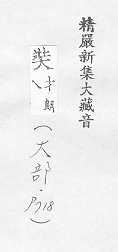 精嚴新集大藏音
奘
才朗
(大部.